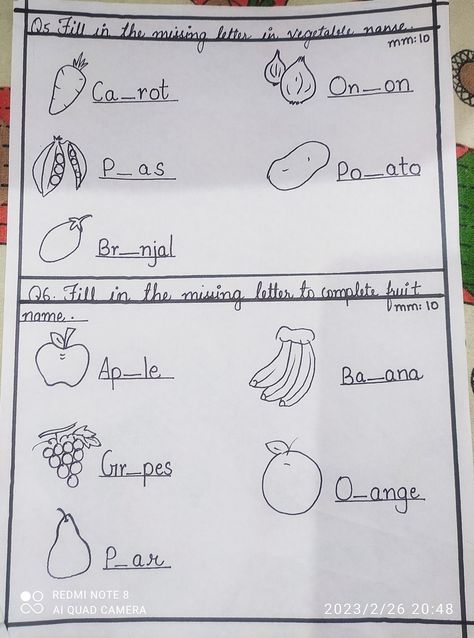 Q5 Fill in the missing letter in vegetable name.
mm:10
Ca_rot
On_on
P_as
Po_ato
Br_njal
Q6. Fill in the missing letter to complete fruit
mm:10
name.
Ap_le
Ba_ana
Gr_pes
O_ange
P_ar
REDMI NOTE 8
AI QUAD CAMERA
2023/2/26 20:48